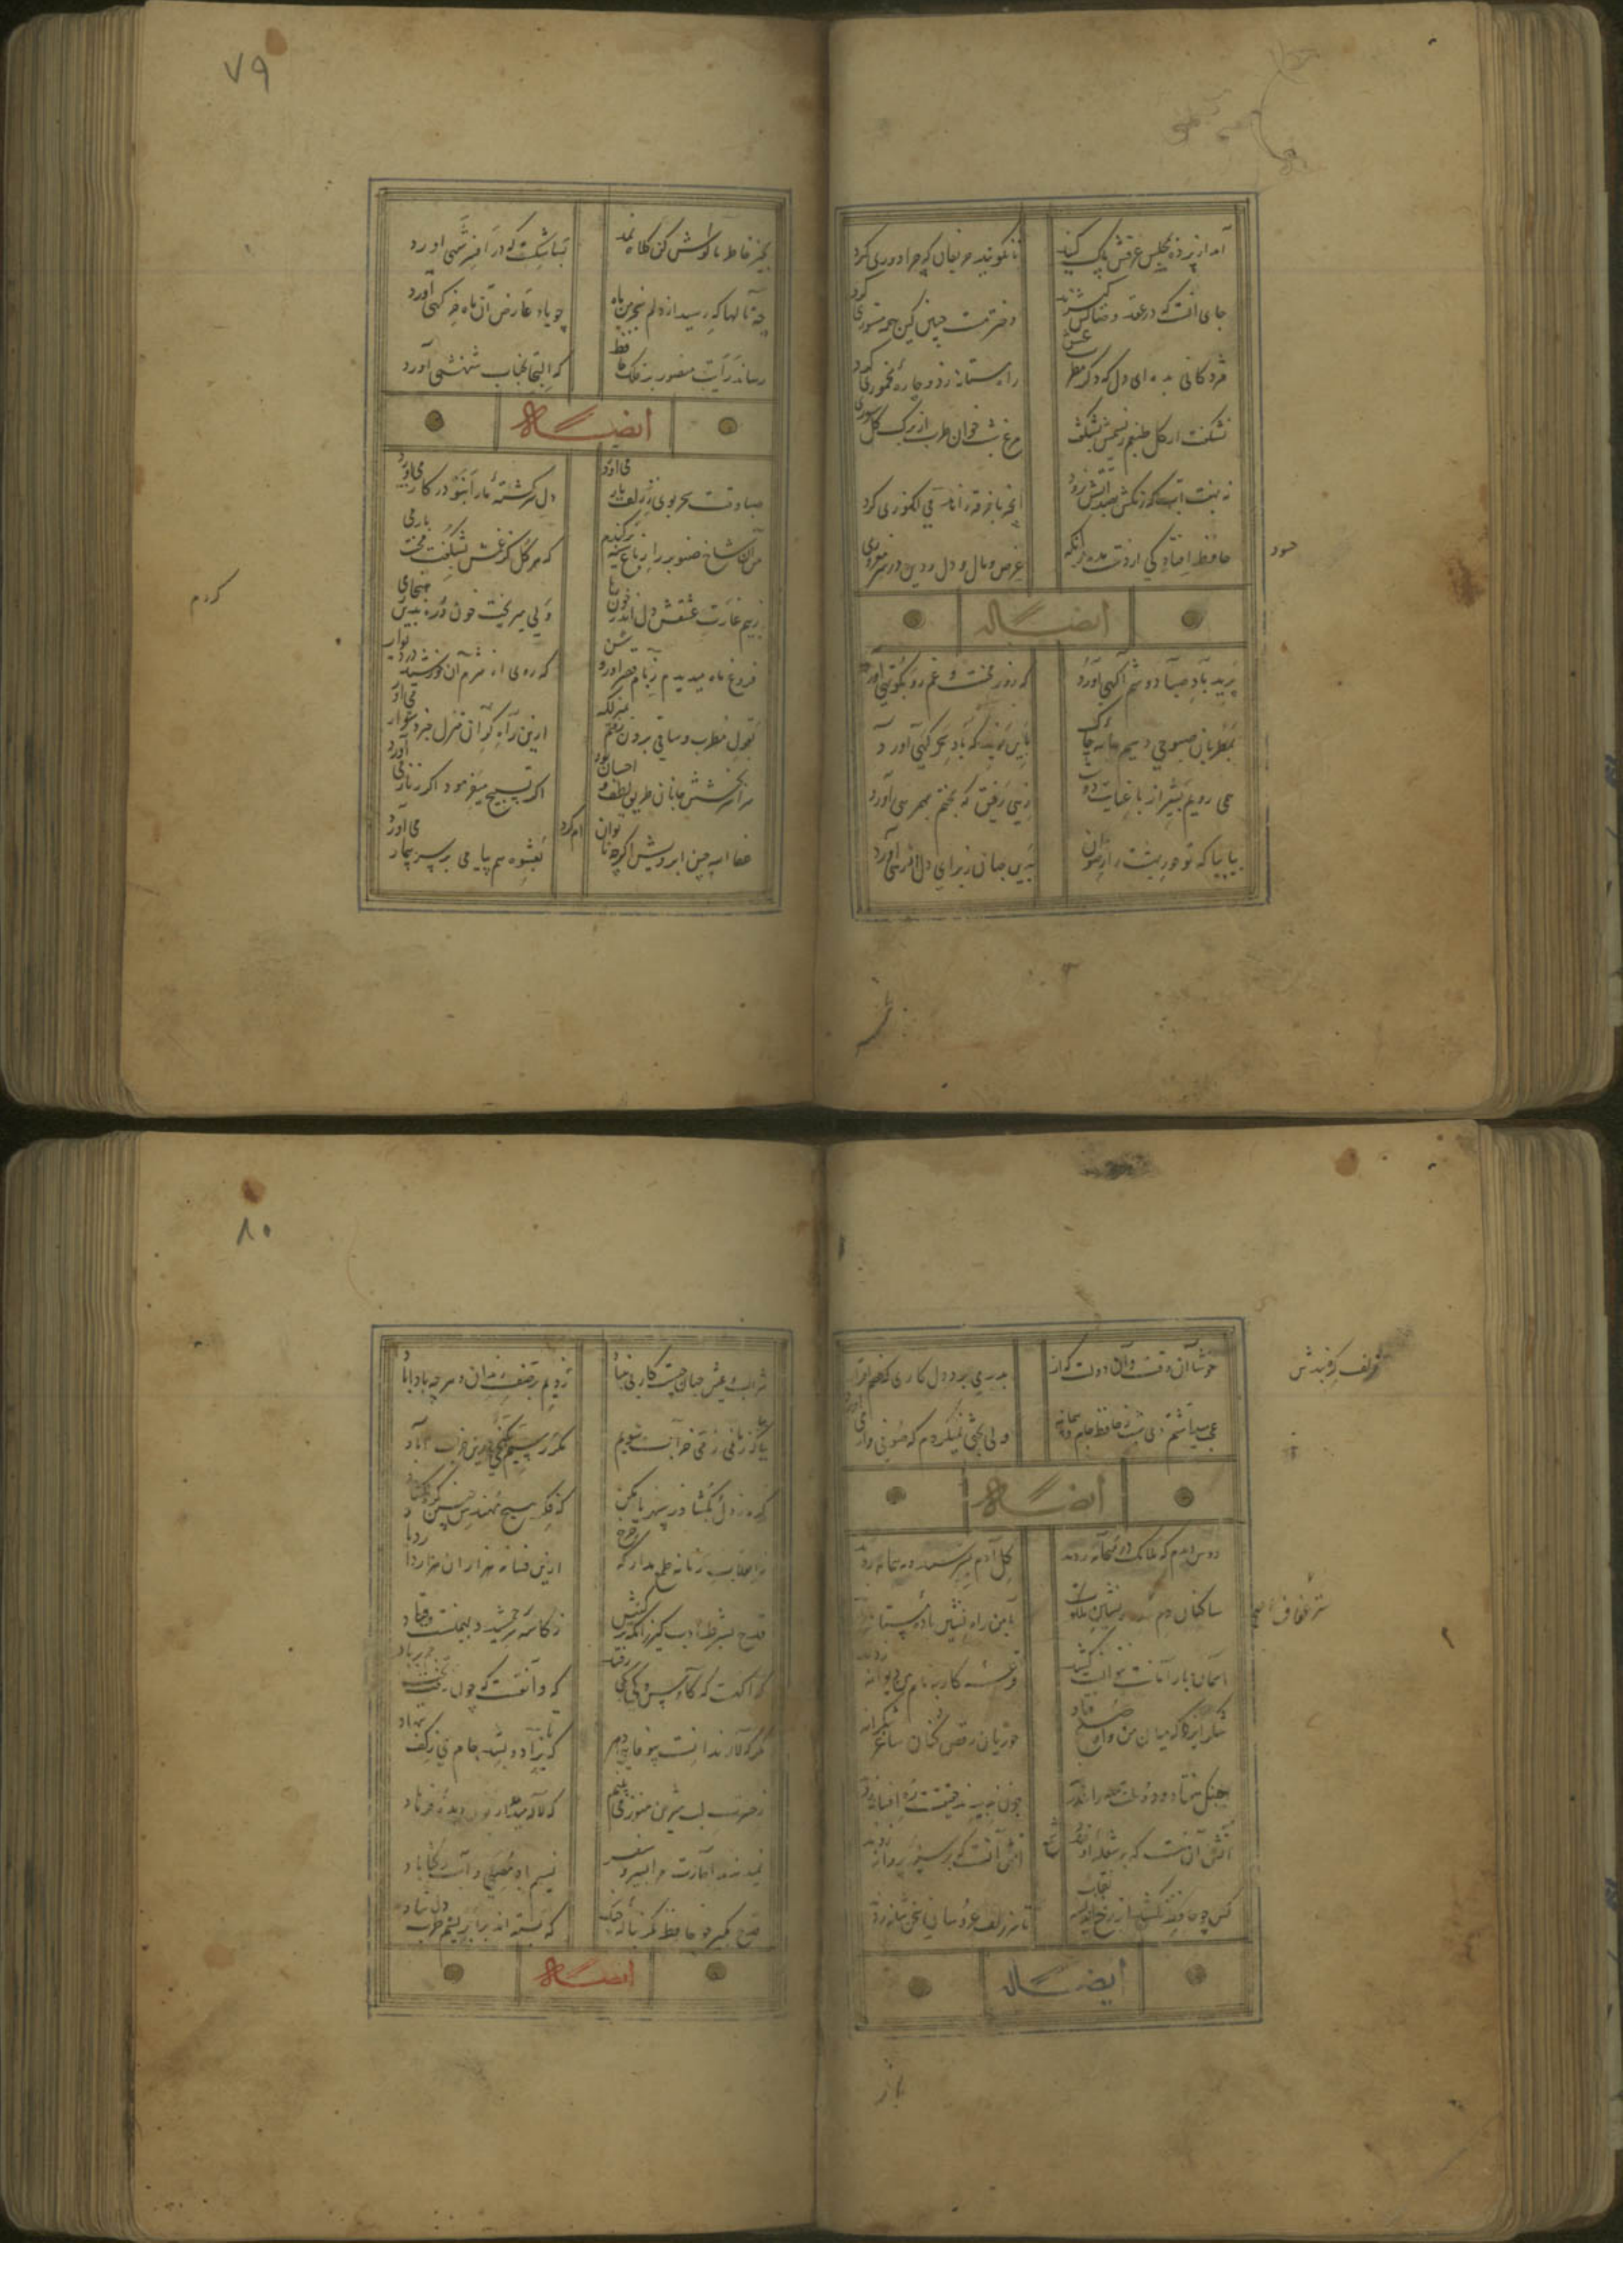 آمد از پرده بمجلس عرقش پاک کنید
تا نگویند حریفان که چرا دوری کرد
جای آنست که در عقد وصالش گیرند
دختر مست چنین کین همه مستوری کرد
مژدگانی بده ای دل که دگر مطرب عشق
راه مستانه زد و چاره مخموری کرد
نشکفت از گل طبعم ز نسیمش بشکفت
مرغ شب خوان طرب از برگ گل سوری
نه بهفت آب که رنگش بصد آتش نرود
آنچه با خرقه زاهد می انگوری کرد
حافظ افتادگی از دست مده زانکه حسود
عرض و مال و دل و دین در سر مغروری
ایضاً له
برید باد صبا دوشم آگهی آورد
که روز محنت و غم رو بکوتهی آورد
بمطربان صبوحی دهیم جامه چاک
باین نوید که باد سحرگهی آورد
همی رویم بشیراز با عنایت دوست
زهی رفیق که بختم بهمرهی آورد
بیا بیا که تو حور بهشت را رضوان
باین جهان ز برای دل رهی آورد
۷۹
بجبر خاطر ما کوش کین کلاه نمد
بسا شکست که در افسر شهی آورد
چه نالها که رسید از دلم بخرمن ماه
چو یاد عارض آن ماه خرگهی آورد
رساند رایت منصور بر فلک حافظ
که التجا بجناب شهنشهی آورد
ایضاً له
صبا وقت سحر بویی ز زلف یار می آورد
دل سرگشته ما را بنو در کار می آورد
من آن شاخ صنوبر را ز باغ سینه برکندم
که هر گل کز غمش بشکفت محنت بار می
ز بیم غارت عشقش دل اندر خون رها
ولی میریخت خون و ره بدین هنجار می
کردم
فروغ ماه میدیدم ز بام قصر او روشن
که روی از شرم آن خورشید در دیوار
بقول مطرب و ساقی برون رفتم
ازین راه گران منزل خبر دشوار می آورد
سراسر بخشش جانان طریق لطف و احسان بود
اگر تسبیح میفرمود اگر زنار می آورد
عفا الله چین ابرویش اگرچه ناتوانم کرد
بعشوه هم پیامی بر سر بیمار می آورد
خوشا آن وقت و آن دولت که از زلف گره بندش
عجب میداشتم دی شب ز حافظ جام و پیمانه
ولی بحثی نمیکردم که صوفی وار می
ایضاً له
دوش دیدم که ملایک در میخانه زدند
گل آدم بسرشتند و به پیمانه زدند
ساکنان حرم ستر و عفاف ملکوت
با من راه نشین باده مستانه
آسمان بار امانت نتوانست کشید
قرعه کار بنام من دیوانه زدند
شکر ایزد که میان من و او صلح فتاد
حوریان رقص کنان ساغر شکرانه
جنگ هفتاد و دو ملت همه را عذر
چون ندیدند حقیقت ره افسانه زدند
آتش آن نیست که بر شعله او خندد شمع
آتش آنست که بر سینه پروانه زدند
کس چو حافظ نکشید از رخ اندیشه نقاب
تا سر زلف عروسان سخن شانه زدند
ایضاً له
۸۰
شراب و عیش نهان چیست کار بی بنیاد
زدیم بر صف رندان و هرچه بادا باد
بیا که زمانی ز می خراب شویم
مگر رسیم بگنجی درین خراب آباد
گره ز دل بگشا و ز سپهر یاد مکن
که فکر هیچ مهندس چنین گره نگشاد
ز انقلاب زمانه عجب مدار که چرخ
ازین فسانه هزاران هزار دارد یاد
قدح بشرط ادب گیر زانکه ترکیبش
ز کاسه سر جمشید و بهمنست و قباد
که آگهست که کاوس و کی کجا رفتند
که واقفست که چون رفت تخت جم بر باد
مگر که لاله بدانست بیوفایی دهر
که تا بزاد و بشد جام می ز کف ننهاد
ز حسرت لب شیرین هنوز می بینم
که لاله میدمد از خون دیده فرهاد
نمیدهند اجازت مرا بسیر و سفر
نسیم باد مصلی و آب رکناباد
قدح مگیر چو حافظ مگر بناله چنگ
که بسته اند بر ابریشم طرب دل شاد
ایضاً له